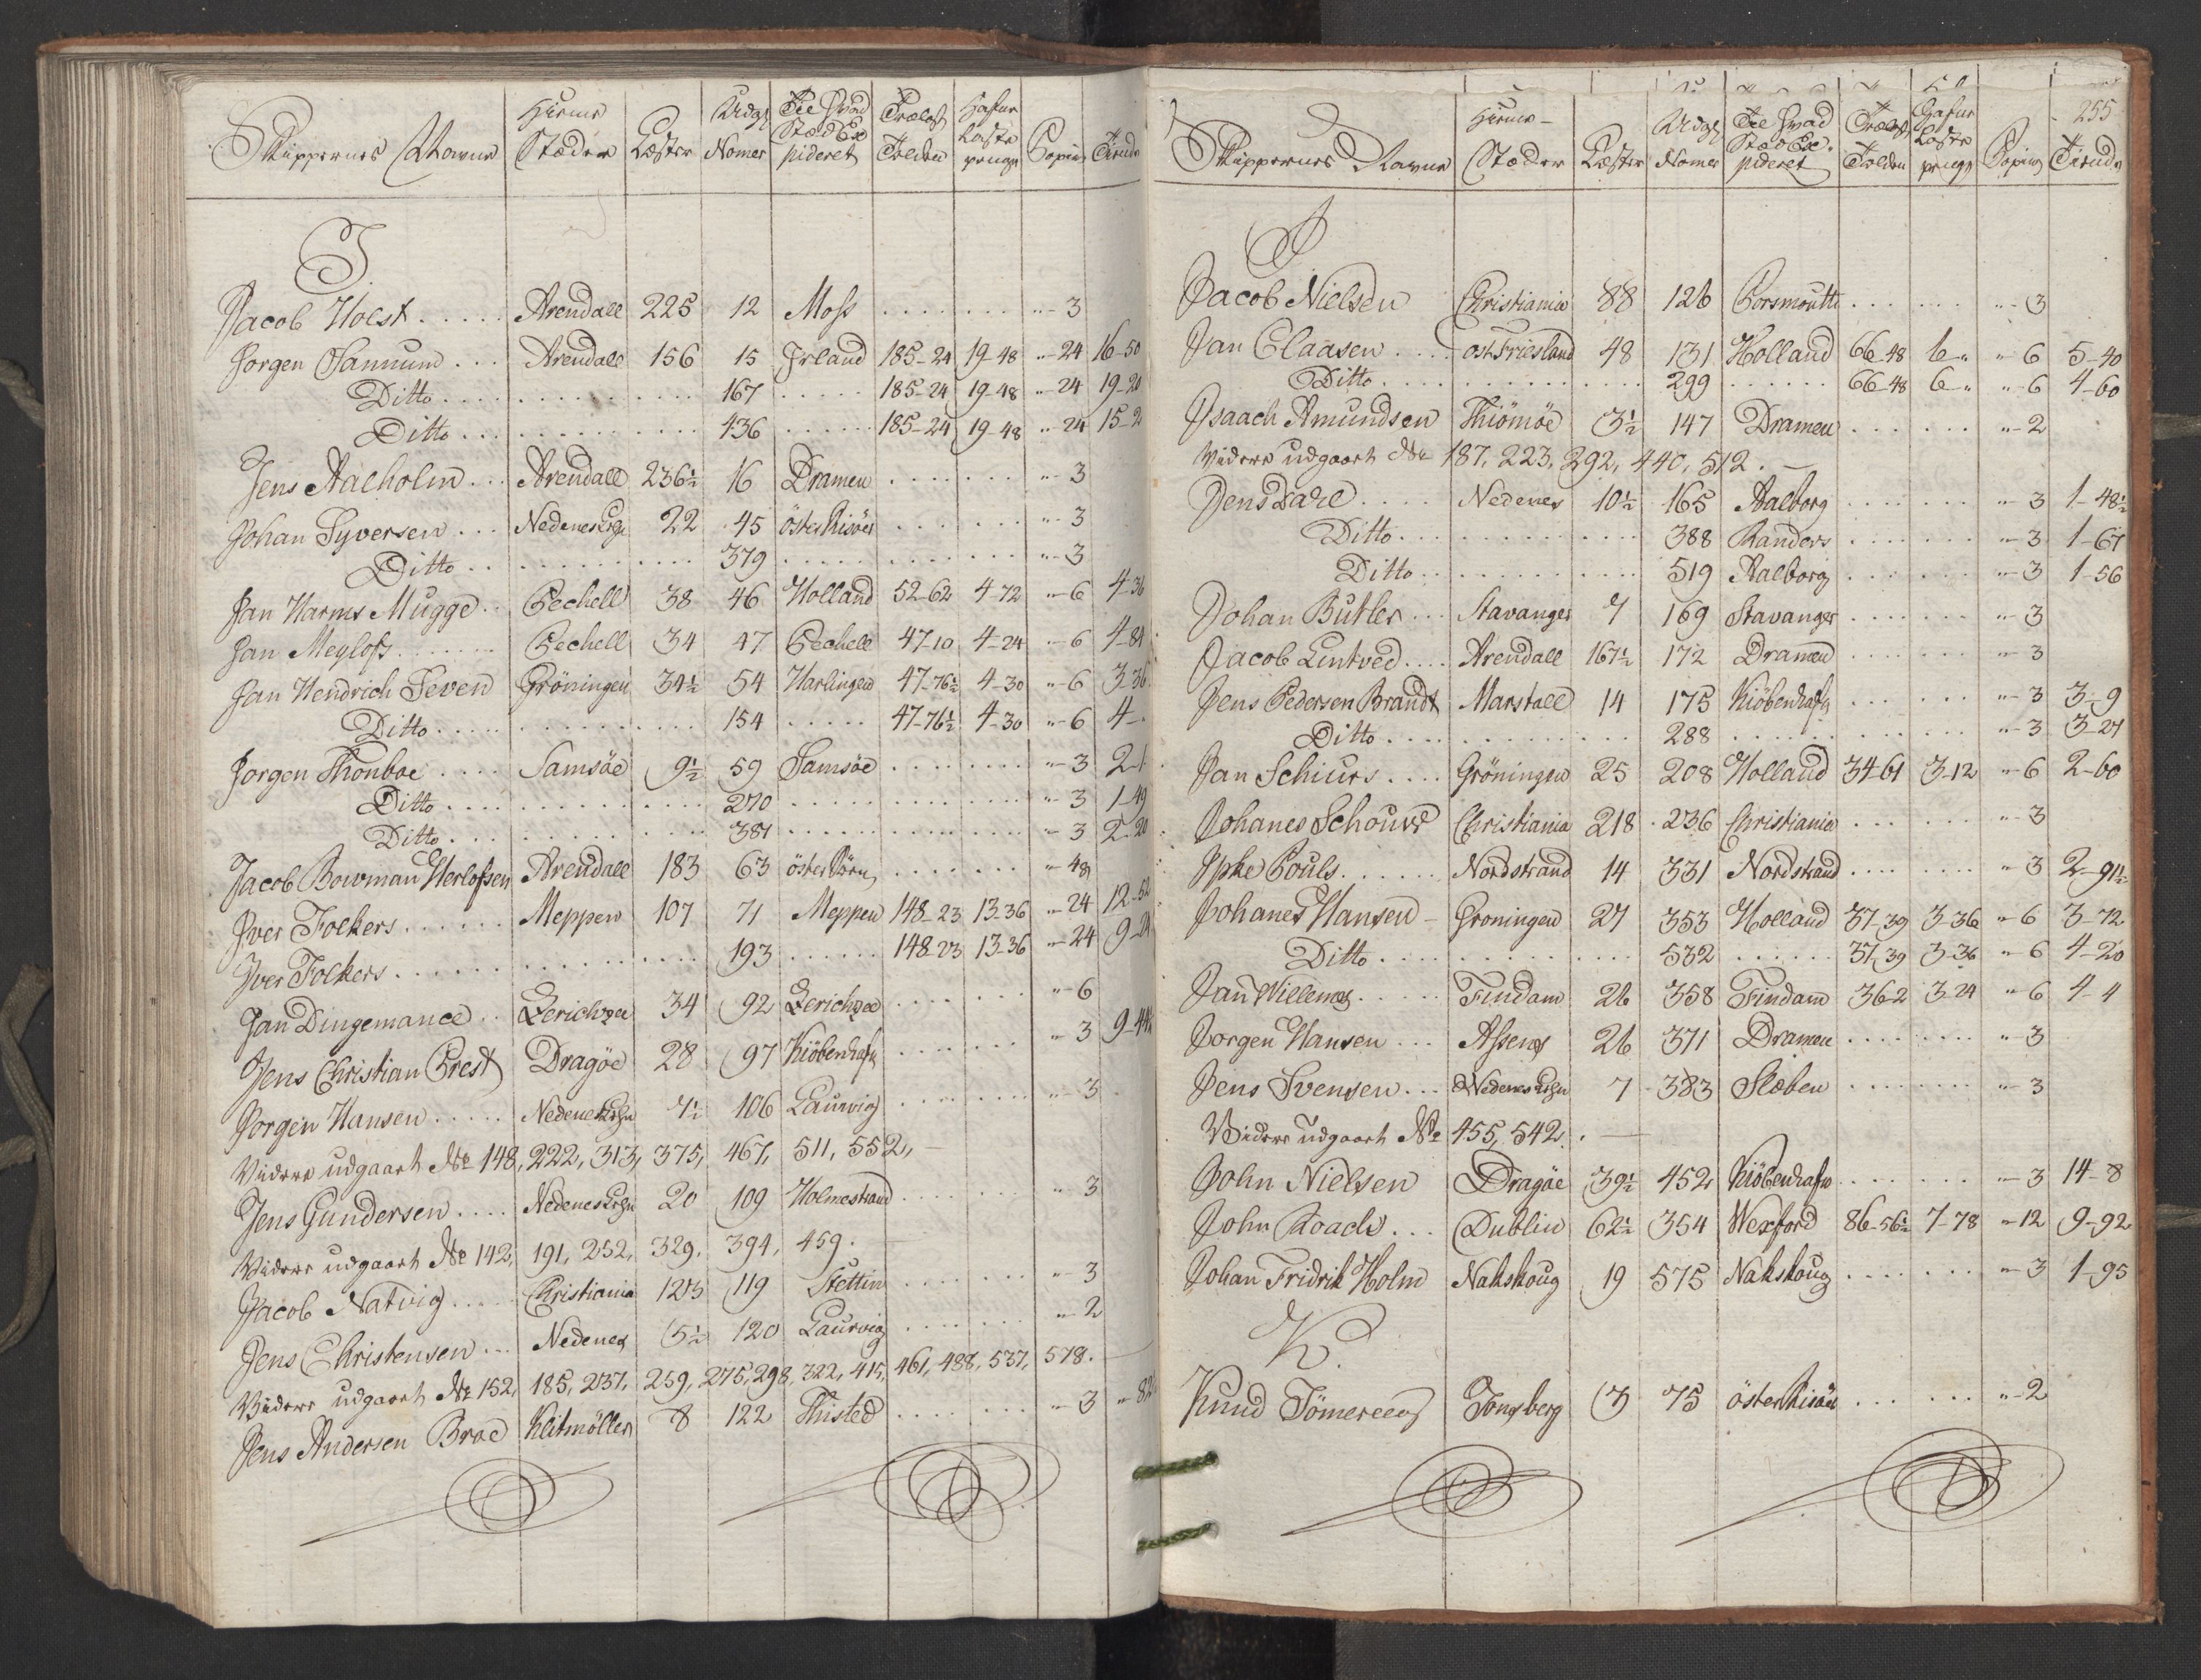 Skippernes Navne Hiemst Stæder Læster Udgs Nomer Til Hvad Stæd Ex pideret Trælast Tolden Hafne Laste penge Papiir Tiende
J
Jacob Holst Arendall 225 12 Moss "-3
Jorgen Samuind Arendall 156 15 Irland 185-24 19-48 "-24 16-50
Ditto 167 185-24 19-48 "-24 19-20
Ditto 436 185-24 19-48 "-24 15-2
Jens Aalholm Arendall 236½ 16 Dramen "-3
Johan Syversen Nedenes 22 45 österRisöer "-3
Ditto 379 "-3
Jan Harms Mugge Pechell 38 46 Holland 52-62 4-72 "-6 4-36
Jan Meyloss Pechell 34 47 Pechell 47-10 4-24 "-6 4-84
Jan Hendrich Seven Gröningen 34½ 54 Harlingen 47-76½ 4-30 "-6 3-36
Ditto 154 47-76½ 4-30 "-6 4-
Jorgen Thonboe Samsöe 9½ 59 Samsöe "-3 2-1
Ditto 270 "-3 1-49
Ditto 381 "-3 2-20
Jacob Bowman Herlofsen Arendall 183 63 "-48
Jver Folkers Meppen 107 71 Meppen 148-23 13-36 "-24 12-52
Jver Folkers 193 148-23 13-36 "-24
Jan Dingemance Zerichzee 34 92 Zerichzee "-6
Jens Christian Prest Dragöe 28 97 Kiöbenhafn "-3 9-44
Jorgen Hansen Nedenes 7½ 106 Laurvig "-3
Videre udgaaet No 148, 222, 313, 375, 467, 511, 552,
Jens Gundersen Nedenes 20 109 Holmestrand "-3
Videre udgaaet No 142, 191, 252, 329, 394, 459.
Jacob Natvig Christiania 123 119 Stettin "-3
Jens Christensen Nedenes 5½ 120 Laurvig "-2
Videre udgaaet No 152, 185, 237, 259, 275, 298, 322, 415, 461, 488, 537, 578.
Jens Andersen Broe Klitmöller 8 122 Thisted "-3 "-82
255
Skippernes Navne Hiems- Stæder Læster Udgs Nomer Til Hvad Stæd Ex- pideret Trælast Tolden Hafne Laste penge Papiir Tiende
J
Jacob Nielsen Christiania 88 126 Porsmouth "-3
Jan Claasen ostFriesland 48 131 Holland 66-48 6-" "-6 5-40
Ditto 299 66-48 6-" "-6 4-60
Jsaach Amundsen Thiömöe 3½ 147 Dramen "-2
Videre udgaaet No 187, 223, 292, 440, 512.
Jens Dahl Nedenes 10½ 165 Aalborg "-3 1-48½
Ditto 388 Randers "-3 1-67
Ditto 519 Aalborg "-3 1-56
Johan Butler Stavanger 7 169 Stavanger "-3
Jacob Lintved Arendall 167½ 172 Dramen "-3
Jens Pedersen Brandt Marstall 14 175 Kiöbenhafn "-3 3-9
Ditto 288 "-3 3-27
Jan Schiurs Gröningen 25 208 Holland 34-61 3-12 "-6 2-60
Johanes Schouw Christiania 218 236 Christiania "-3
Jpke Pouls Nordstrand 14 331 Nordstrand "-3 2-91½
Johanes Hansen Groningen 27 353 Holland 37-39 3-36 "-6 3-72
Ditto 532 37-39 3-36 "-6 4-20
Jan Willems Findam 26 358 Findam 36-2 3-24 "-6 4-4
Jorgen Hansen Assens 26 371 Dramen "-3
Jens Svensen Nedenes 7 383 Sleben "-3
Videre udgaaet No 455, 542.
John Nielsen Dragöe 39½ 452 Kiöbenhafn "-3 14-8
John Roach Dublin 62½ 354 Wexford 86-56½ 7-78 "-12 9-92
Johan Fridrik Holm Nakskoug 19 575 Nakskoug "-3 1-95
K.
Knud Tongsberg 7 75 österRisöer "-2